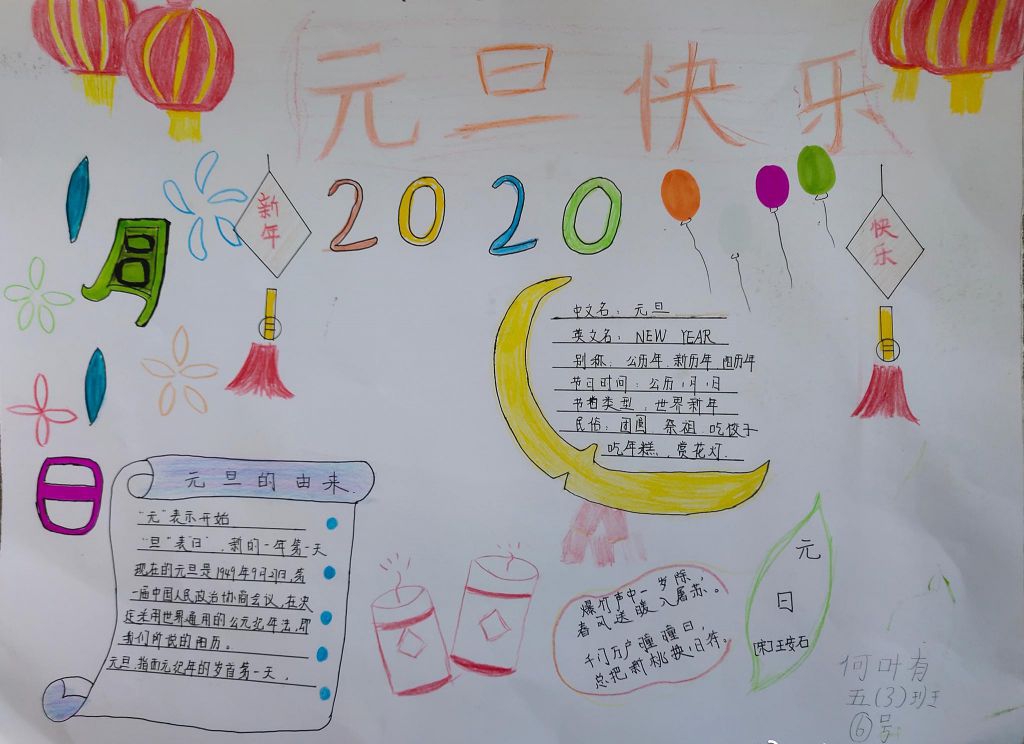 元旦快乐
新年
2020
快乐
1月
1日
中文名：元旦
英文名：NEW YEAR
别称：公历年.新历年.阳历年
节日时间：公历1月1日
节日类型：世界新年
民俗：团圆 祭祖 吃饺子
吃年糕 赏花灯
元旦的由来.
"元"表示开始
"旦"表"日"，新的一年第一天
现在的元旦是1949年9月27日,第
一届中国人民政治协商会议,在决
定采用世界通用的公元纪年法,即
我们所说的阳历。
元旦,指西元纪年的岁首第一天,
爆竹声中一岁除,
春风送暖入屠苏。
千门万户曈曈日,
总把新桃换旧符。
元
日
[宋]王安石
何叶有
五(3)班
⑥号